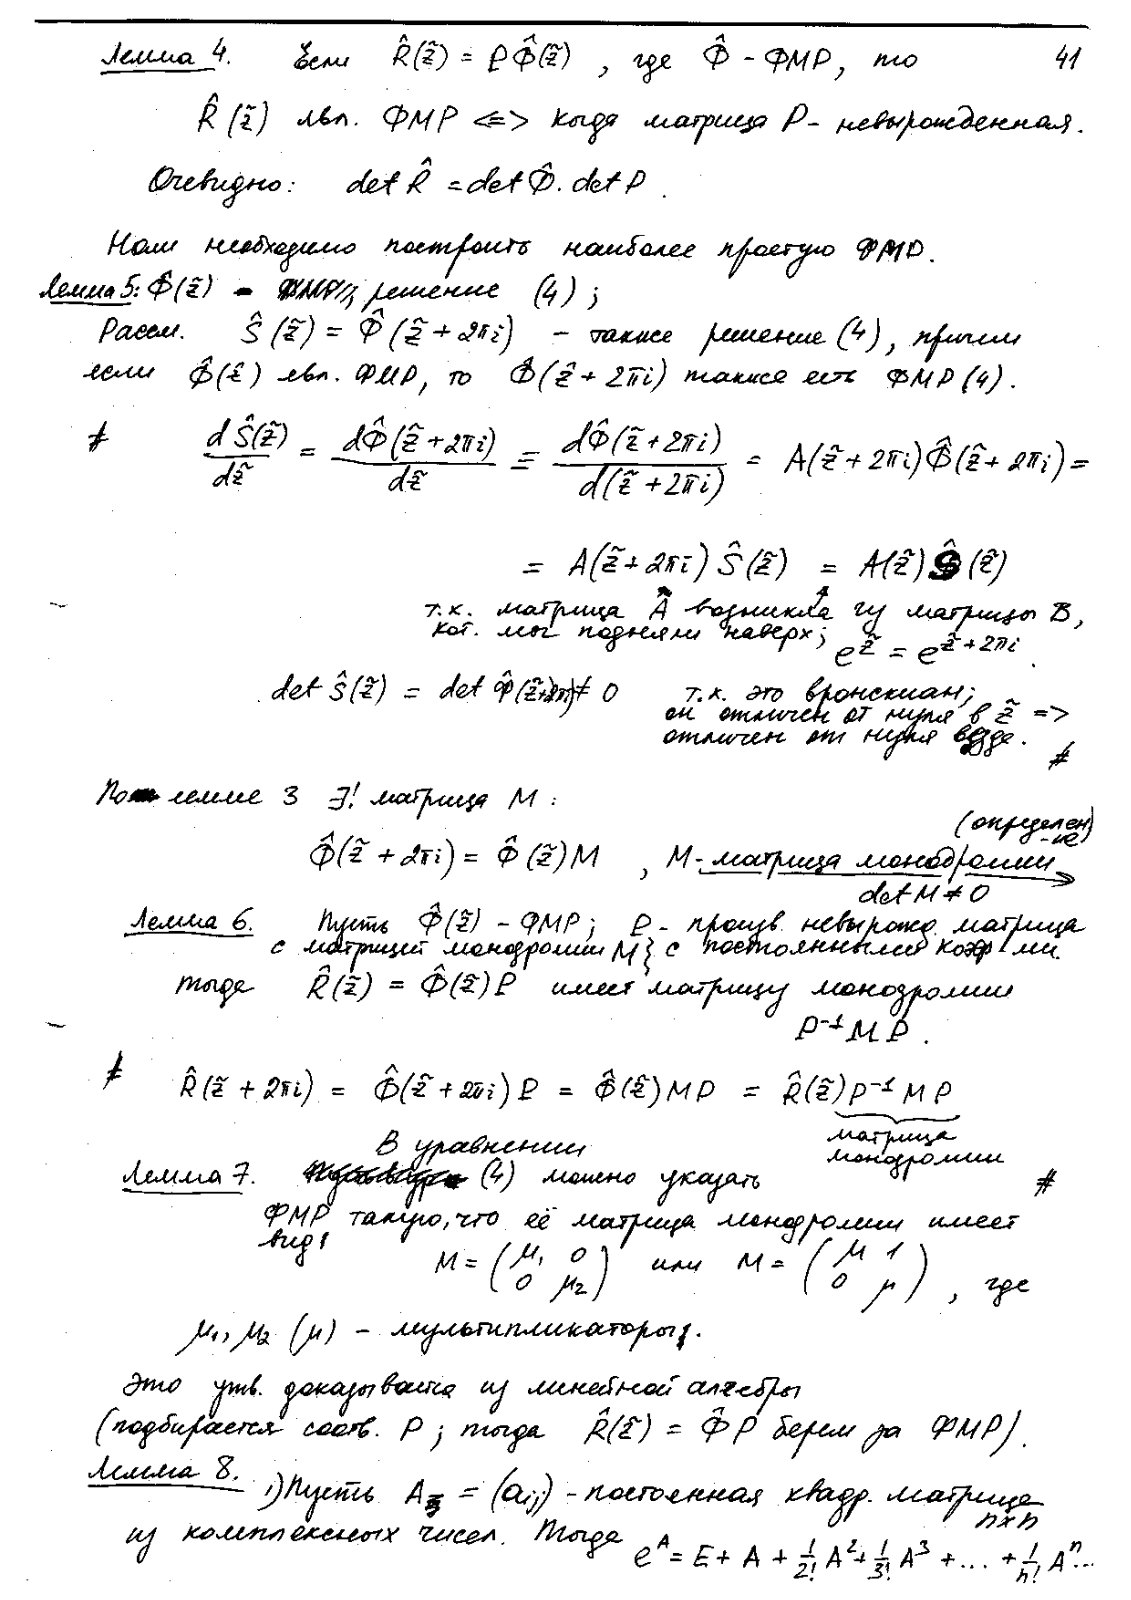 Лемма 4. Если R̂(z̃) = PΦ̂(z̃), где Φ̂ - ФМР, то 41
R̂(z̃) явл. ФМР <=> когда матрица P - невырожденная.
Очевидно: det R̂ = det Φ̂. det P.
Нам необходимо построить наиболее простую ФМР.
Лемма 5: Φ̂(z̃) - решение (4);
Рассм. Ŝ(z̃) = Φ̂(z̃ + 2πi) - также решение (4), причем
если Φ̂(z̃) явл. ФМР, то Φ̂(z̃ + 2πi) также есть ФМР (4).
# dŜ(z̃)/dz̃ = dΦ̂(z̃+2πi)/dz̃ = dΦ̂(z̃+2πi)/d(z̃+2πi) = A(z̃+2πi)Φ̂(z̃+2πi) =
= A(z̃+2πi)Ŝ(z̃) = A(z̃)Ŝ(z̃)
т.к. матрица A возникла из матрицы B,
кот. мы подняли наверх; e^z̃ = e^(z̃+2πi).
det Ŝ(z̃) = det Φ̂(z̃+2πi) ≠ 0 т.к. это вронскиан;
он отличен от нуля в z̃ =>
отличен от нуля везде. #
По лемме 3 ∃! матрица M:
(определение)
Φ̂(z̃ + 2πi) = Φ̂(z̃)M, M - матрица монодромии
det M ≠ 0
Лемма 6. Пусть Φ̂(z̃) - ФМР; P - произв. невырожд. матрица
с матрицей монодромии M} с постоянными коэф-ми.
тогда R̂(z̃) = Φ̂(z̃)P имеет матрицу монодромии
P⁻¹MP.
# R̂(z̃ + 2πi) = Φ̂(z̃+2πi)P = Φ̂(z̃)MP = R̂(z̃)P⁻¹MP
матрица
монодромии
В уравнении
Лемма 7. (4) можно указать #
ФМР такую, что её матрица монодромии имеет
вид:
M = (μ₁ 0; 0 μ₂) или M = (μ 1; 0 μ), где
μ₁, μ₂ (μ) - мультипликаторы.
Это утв. доказывается из линейной алгебры
(подбирается соотв. P; тогда R̂(z̃) = Φ̂P берем за ФМР).
Лемма 8. 1) Пусть A = (aᵢⱼ) - постоянная квадр. матрица
n×n
из комплексных чисел. Тогда e^A = E + A + 1/2! A² + 1/3! A³ + ... + 1/n! Aⁿ...